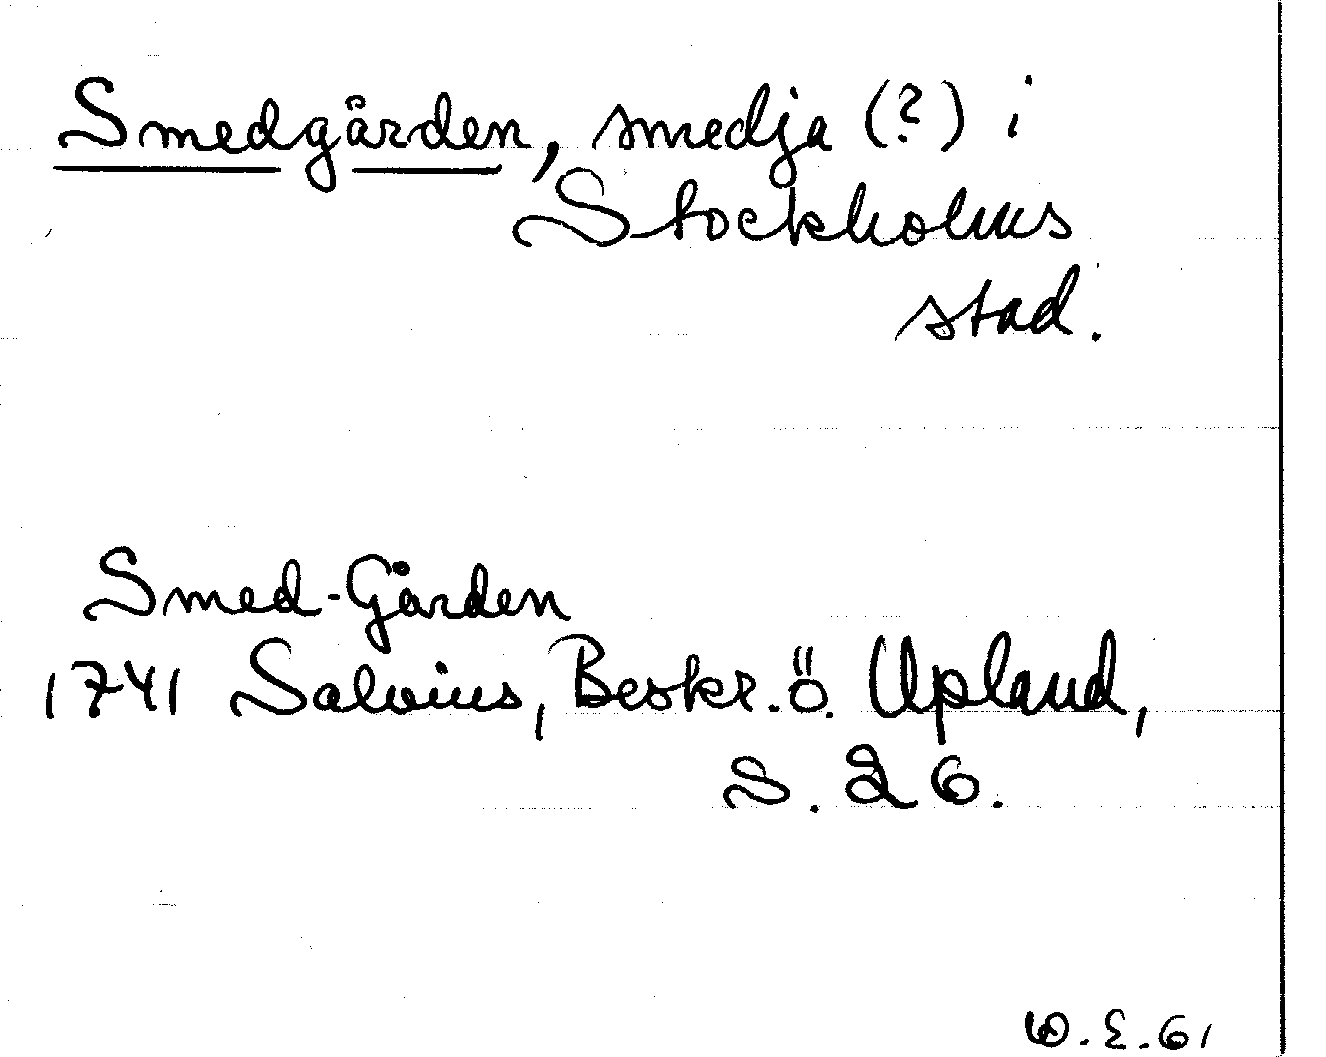 Smedgården, smedja (?) i
Stockholms
stad.
Smed-Gården
1741 Salvius, Beskr. ö. Upland,
S. 26.
W.E. 61